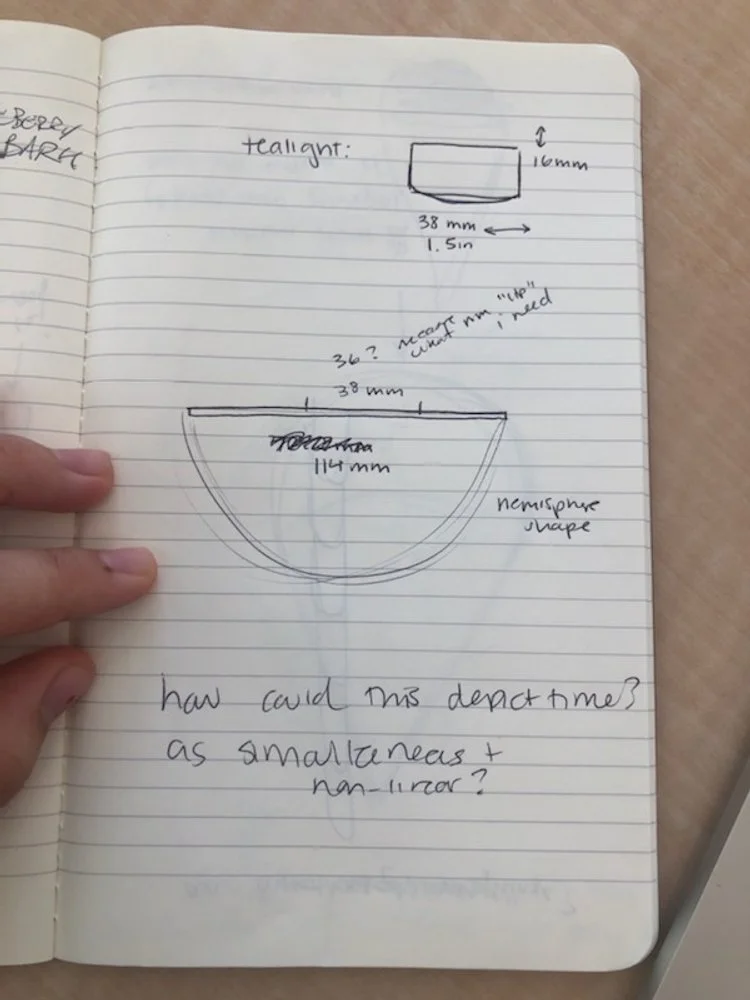 EBERRY
BARK
tealight:
16mm
38 mm
1.5in
36?
what mm "lip"
i need
38 mm
114 mm
hemisphere
shape
how could this depict time?
as simaltaneous +
non-linear?